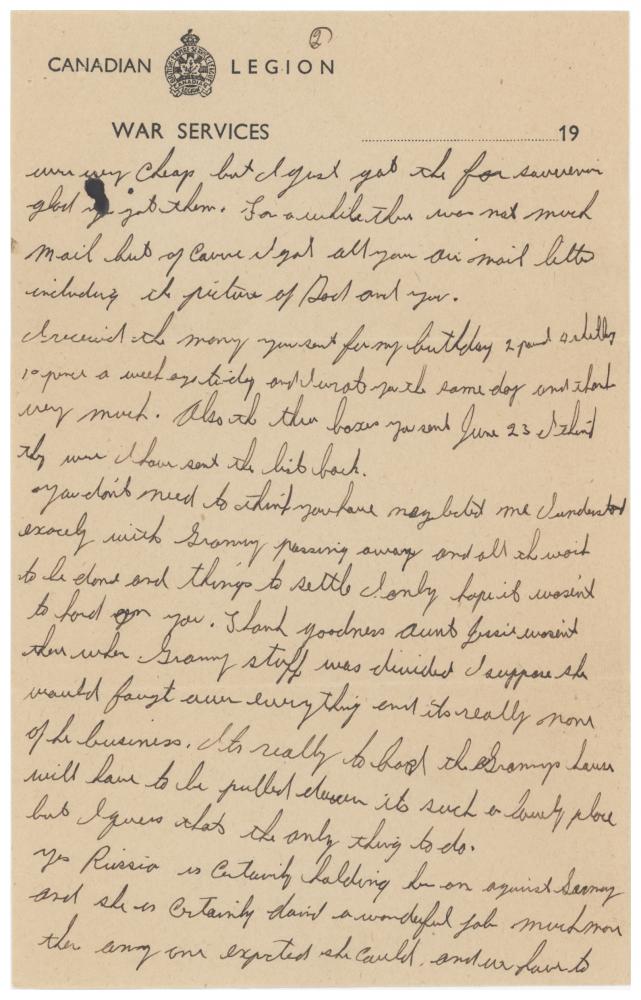 2
CANADIAN LEGION
WAR SERVICES 19
were very cheap but I just got the for souvenir
glad I got them. For a while there was not much
mail but of course I got all your air mail letters
including the picture of Dad and you.
I received the money you sent for my birthday 2 pound 4 shilling
10 pence a week ago today and I wrote you the same day and thank
very much. Also the three boxes you sent June 23 I think
they were I have sent the list back.
You don't need to think you have neglected me I understood
exacely with Granny passing away and all the work
to be done and things to settle I only hope it wasn't
to hard on you. Thank goodness aunt Jessie wasent
there when Granny stuff was divided I suppose she
would faught over everything and its really none
of her business. Its really to bad the Grannys house
will have to be pulled down its such a lovely place
but I guess thats the only thing to do.
yes Russia is certainly holding her on against Germany
and she is certainly doind a wonderful job much more
then any one expected she could. and we have to